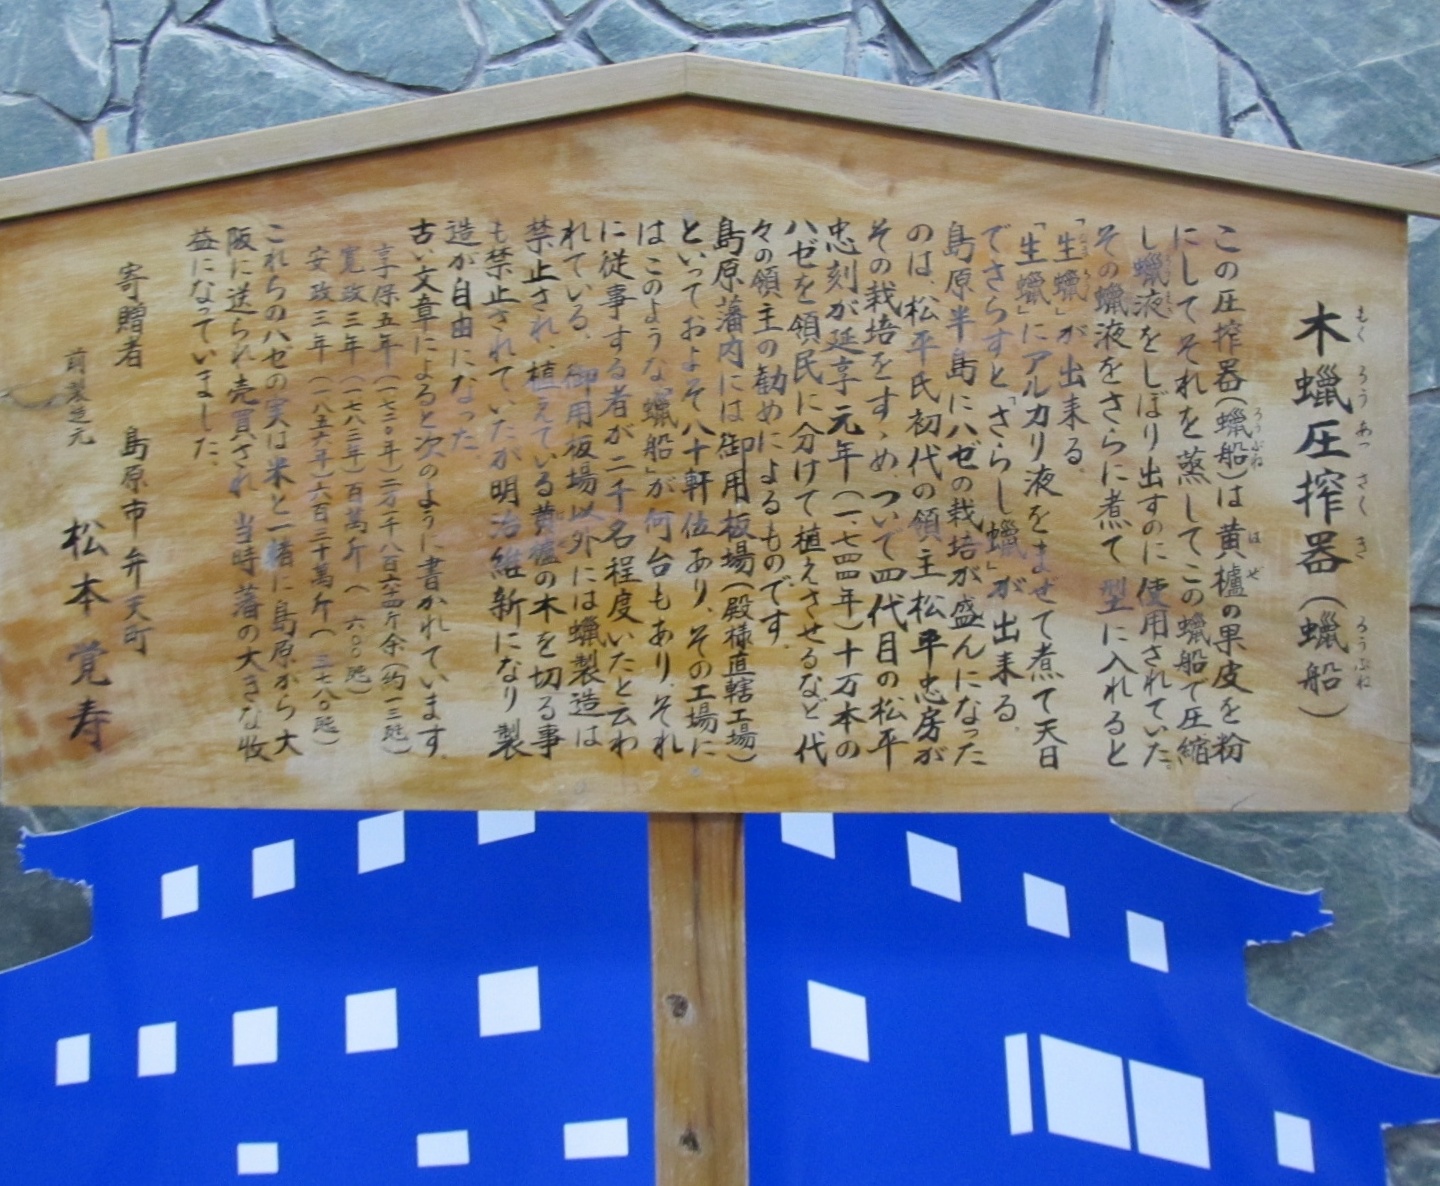 木蠟圧搾器(蠟船)
この圧搾器(蠟船)は黄櫨の果皮を粉
にしてそれを蒸してこの蠟船で圧縮
し蠟液をしぼり出すのに使用されていた。
その蠟液をさらに煮て型に入れると
「生蠟」が出来る。
「生蠟」にアルカリ液をまぜて煮て天日
でさらすと「さらし蠟」が出来る。
島原半島にハゼの栽培が盛んになった
のは、松平氏初代の領主松平忠房が
その栽培をすゝめ、ついで四代目の松平
忠刻が延享元年(一、七四四年)十万本の
ハゼを領民に分けて植えさせるなど代
々の領主の勧めによるものです。
島原藩内には御用板場(殿様直轄工場)
といっておよそ八十軒位あり、その工場に
はこのような「蠟船」が何台もあり、それ
に従事する者が二千名程度いたと云わ
れている。御用板場以外には蠟製造は
禁止され、植えている黄櫨の木を切る事
も禁止されていたが明治維新になり製
造が自由になった。
古い文章によると次のように書かれています。
享保五年(一七二〇年)二万千八百六四斤余(約一三瓲)
寛政三年(一七八三年)百萬斤(六〇〇瓲)
安政三年(一八五六年)六百三十萬斤(三七八〇瓲)
これらのハゼの実は米と一緒に島原から大
阪に送られ売買され、当時、藩の大きな収
益になっていました。
寄贈者 島原市弁天町
前製造元 松本覚寿